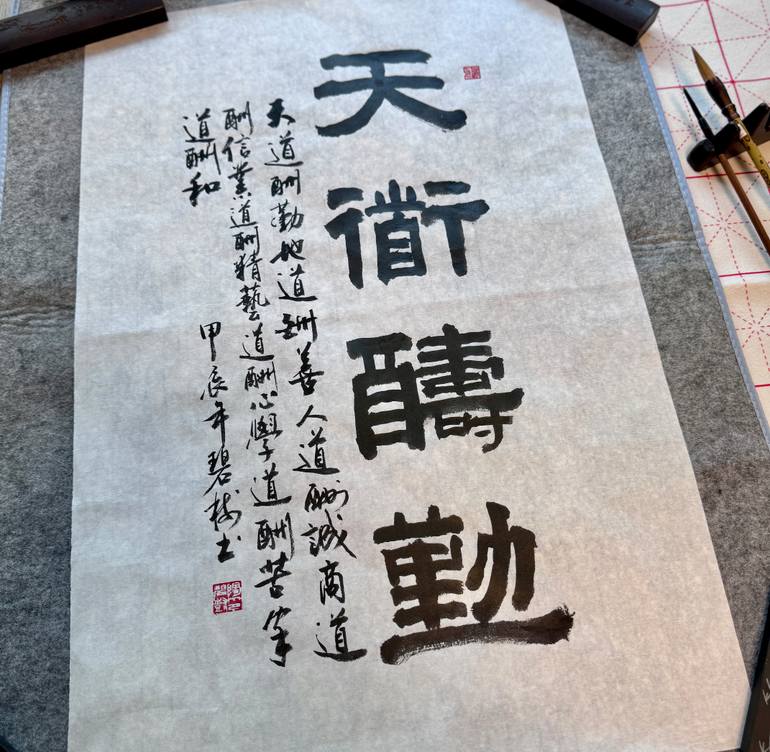 天衜醻勤
天道酬勤地道酬善人道酬誠商道
酬信業道酬精藝道酬心學道酬苦家
道酬和
甲辰年碧树书